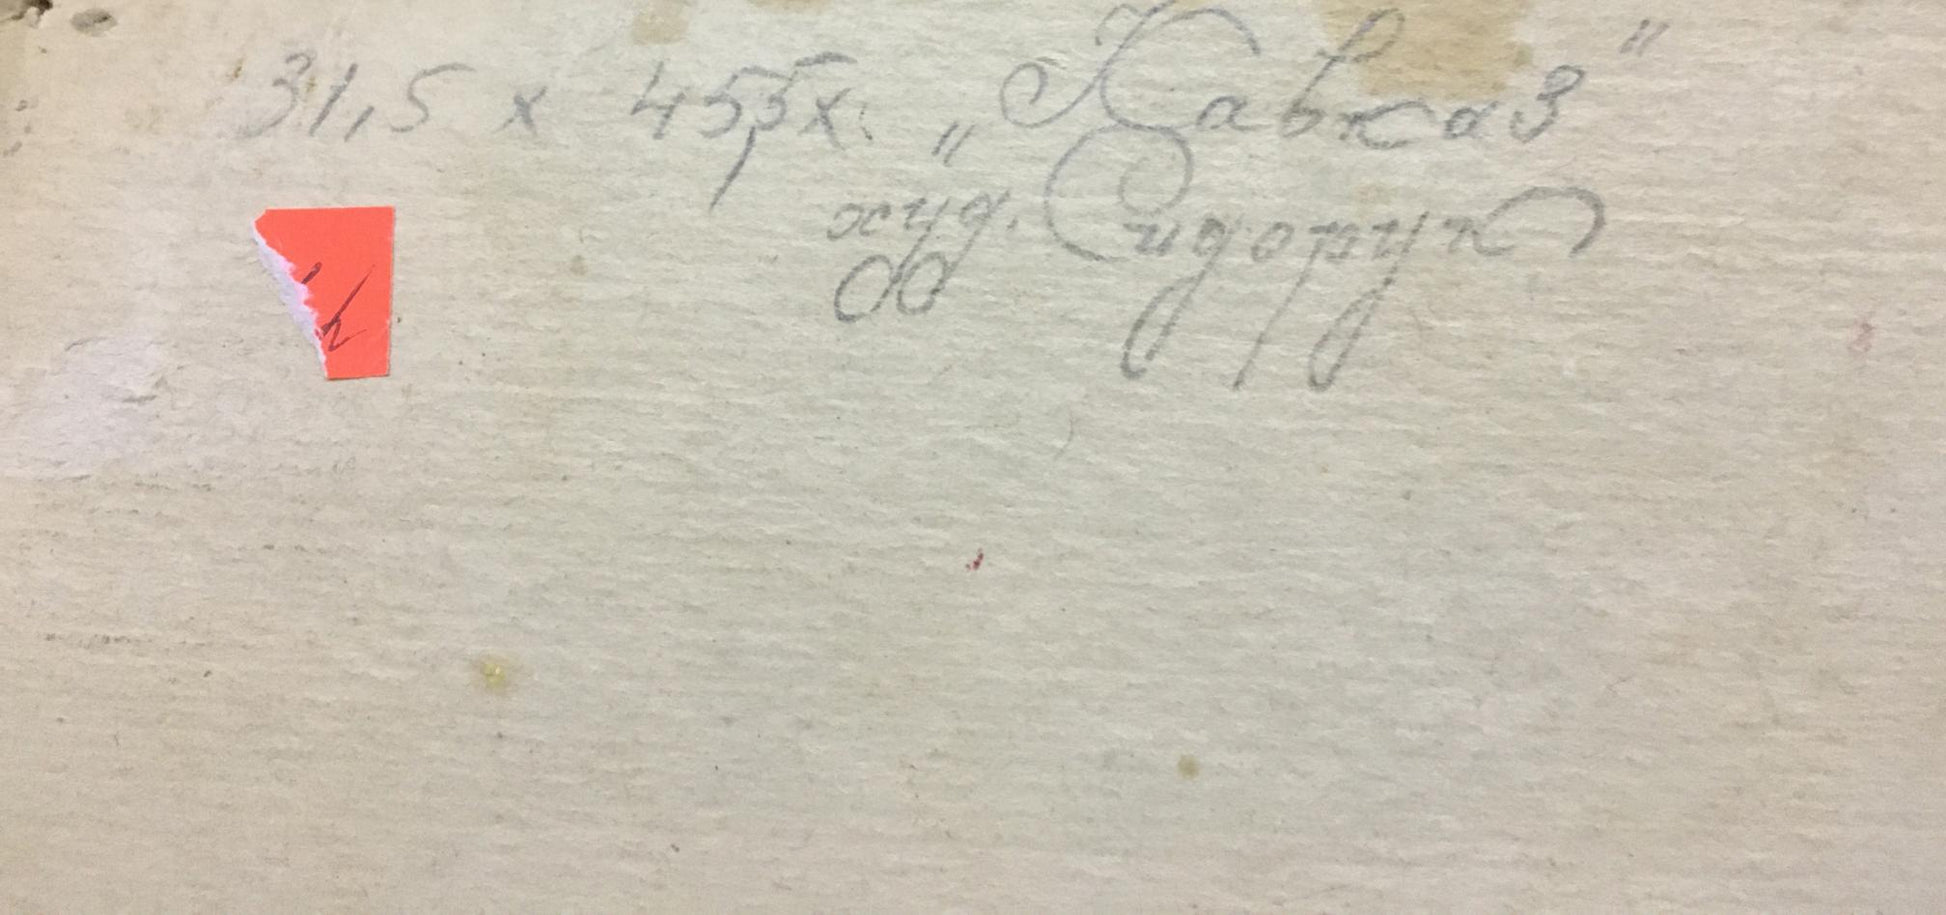 31,5 x 45,5 х. „Кавказ"
худ. Сидорук